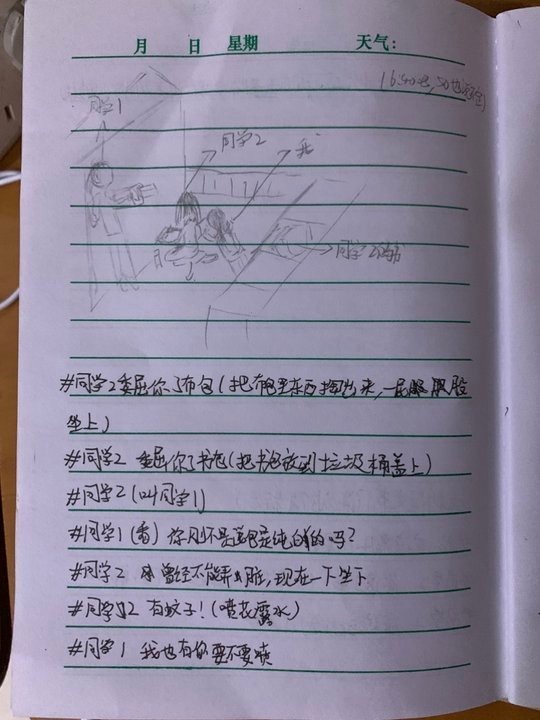 月 日 星期 天气:
同学1
同学2
我
同学2的书
#同学2 委屈你了布包(把布包里东西掏出来,一屁股
坐上)
#同学2 委屈你了书包(把书包放到垃圾桶盖上)
#同学2 (叫同学1)
#同学1 (看) 你刚不是说包是纯白的吗?
#同学2 曾经不能弄脏,现在一下坐下
#同学2 有蚊子!(喷花露水)
#同学1 我也有你要不要喷